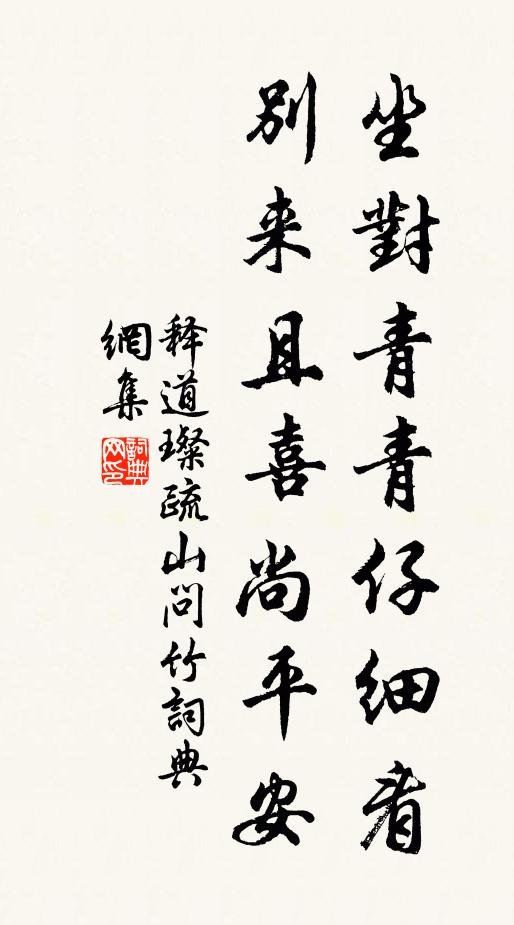 坐對青青仔細看
別来且喜尚平安
释道璨疏山問竹詞典
網集
詞典网印